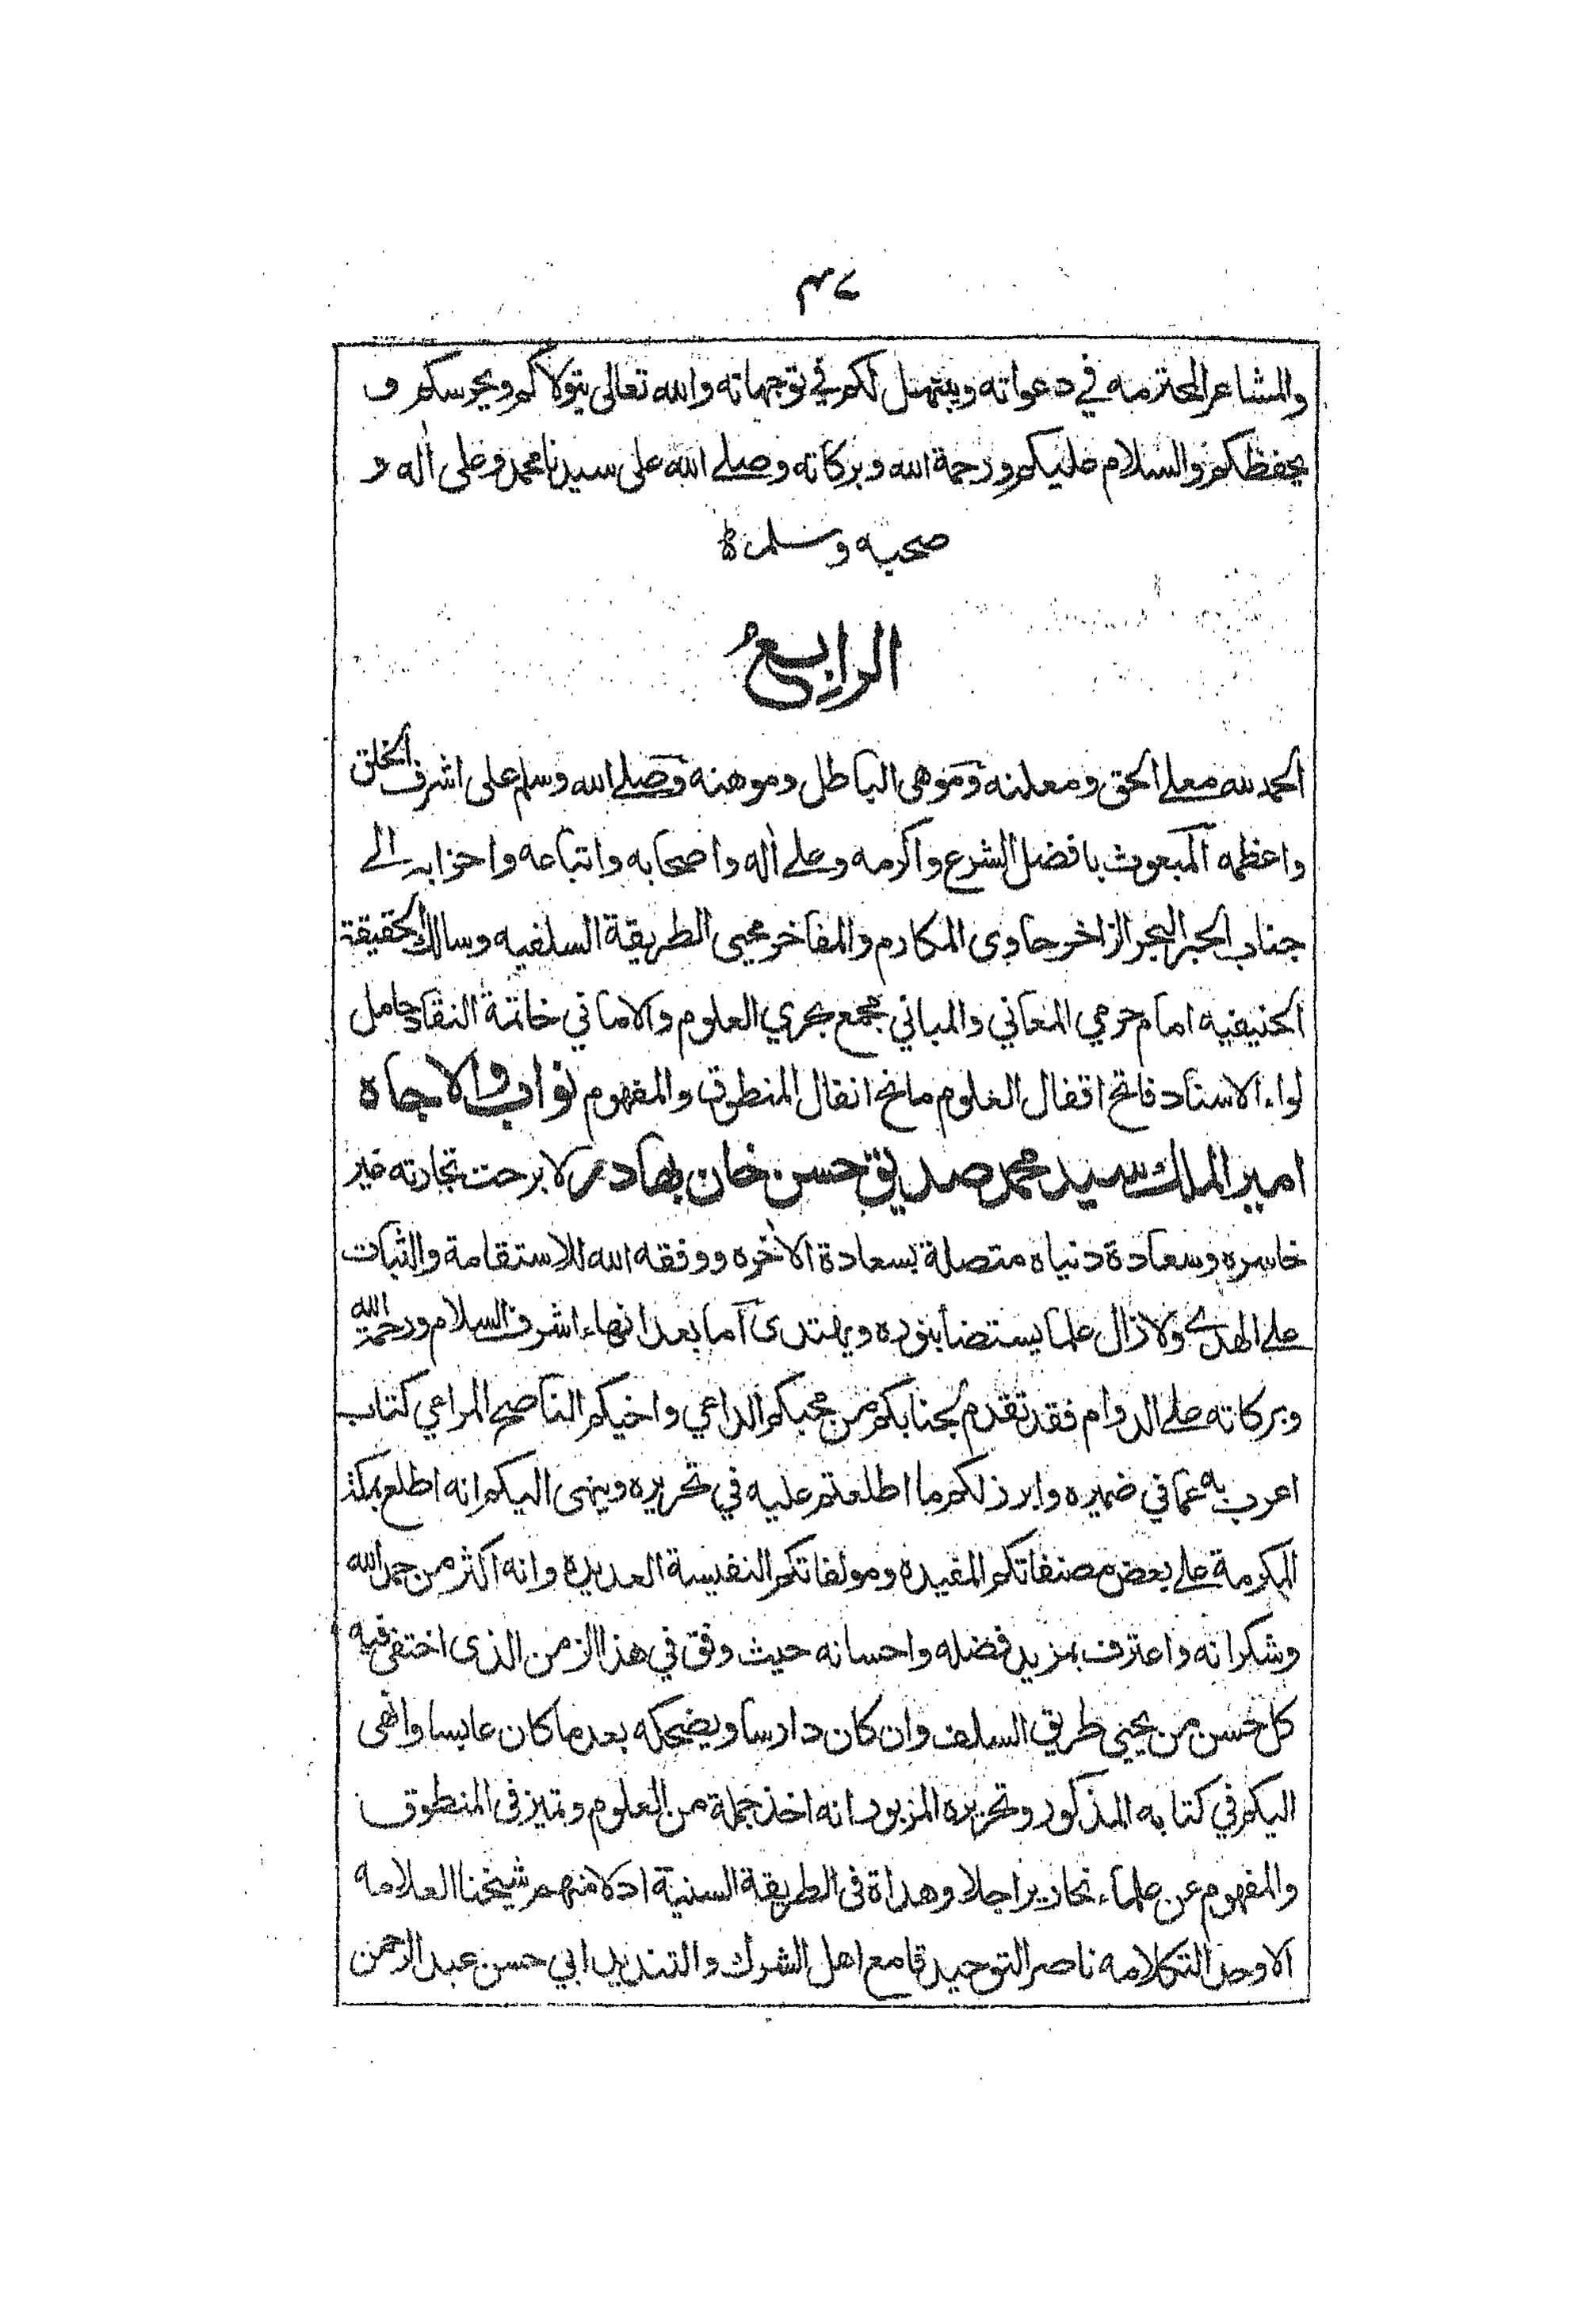 ٣٧
والمشاعر المحترمه في دعواته ويبتهل لكم في توجهاته والله تعالى يتولاكم ويحرسكم و
يحفظكم والسلام عليكم ورحمة الله وبركاته وصلے الله على سيدنا محمد وعلى اٰله و
صحبه وسلم
الرابعُ
الحمد لله معلے الحق ومعلنه وموهى الباطل وموهنه وصلے الله وسلم على اشرف الخلق
واعظمه المبعوث بافضل الشرع واكرمه وعلے اٰله واصحابه واتباعه واحزابه الے
جناب الحبر البحر الزاخر حاوى المكارم والمفاخر محيى الطريقة السلفيه وسالك الحقيقة
الحنيفيه امام حرمي المعاني والمباني مجمع بحري العلوم والاماني خاتمة النقاد حامل
لواء الاسناد فاتح اقفال العلوم مانح انفال المنطوق والمفهوم نواب والا جاه
امير الملك سيد محمد صديق حسن خان بهادر لا برحت تجارته غير
خاسره وسعادة دنياه متصلة بسعادة الاٰخره ووفقه الله للاستقامة والثبات
علے الهدے ولا زال علما يستضا بنوره ويهتدى اما بعد انهاء اشرف السلام ورحمة الله
وبركاته علے الدوام فقد تقدم لجنابكم من محبكم الداعي واخيكم الناصح المراعي كتاب
اعرب به عما في ضميره وابرز لكم ما اطلعتم عليه في تحريره وينهى اليكم انه اطلع بمكة
المكرمة علے بعض مصنفاتكم المفيده ومولفاتكم النفيسة العديده وانه اكثر من حمد الله
وشكرانه واعترف بمزيد فضله واحسانه حيث وفق في هذا الزمن الذى اختفى فيه
كل حسن من يحيى طريق السلف وان كان دارسا ويضحكه بعد ما كان عابسا وانهى
اليكم في كتابه المذكور وتحريره المزبور انه اخذ جملة من العلوم وتميز فى المنطوق
والمفهوم عن علماء نحارير اجلا وهداة فى الطريقة السنية ادلا منهم شيخنا العلامه
الاوحد التكلامه ناصر التوحيد قامع اهل الشرك والتنديد ابي حسن عبد الرحمن